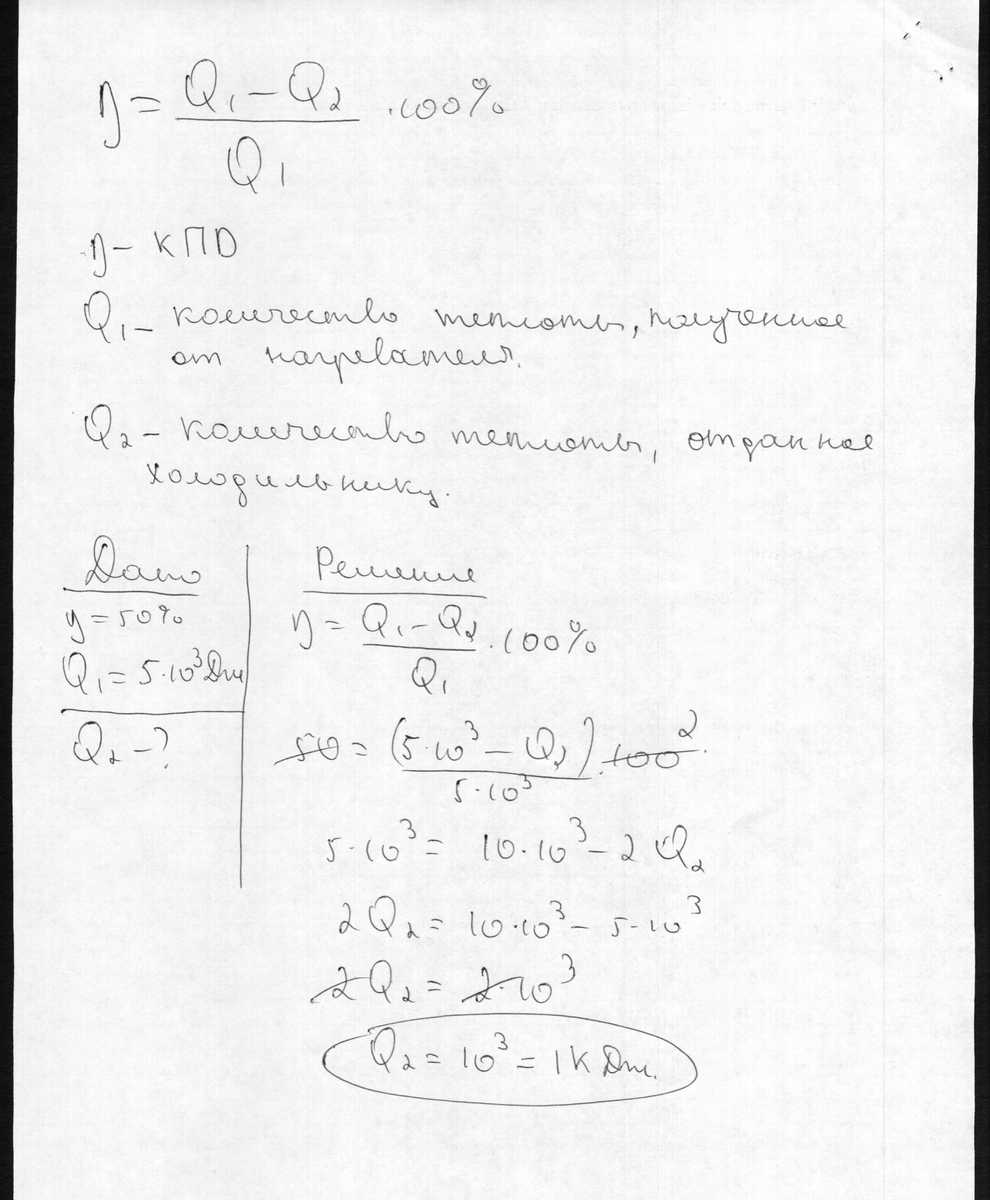 η = (Q₁ − Q₂) / Q₁ · 100%
η – КПД
Q₁ – количество теплоты, полученное
от нагревателя.
Q₂ – количество теплоты, отданное
холодильнику.
Дано
η = 50%
Q₁ = 5·10³ Дж
Q₂ – ?
Решение
η = (Q₁ − Q₂) / Q₁ · 100%
50 = (5·10³ − Q₂) / 5·10³ · 100 2
5·10³ = 10·10³ − 2Q₂
2Q₂ = 10·10³ − 5·10³
2Q₂ = 2·10³
Q₂ = 10³ = 1кДж.